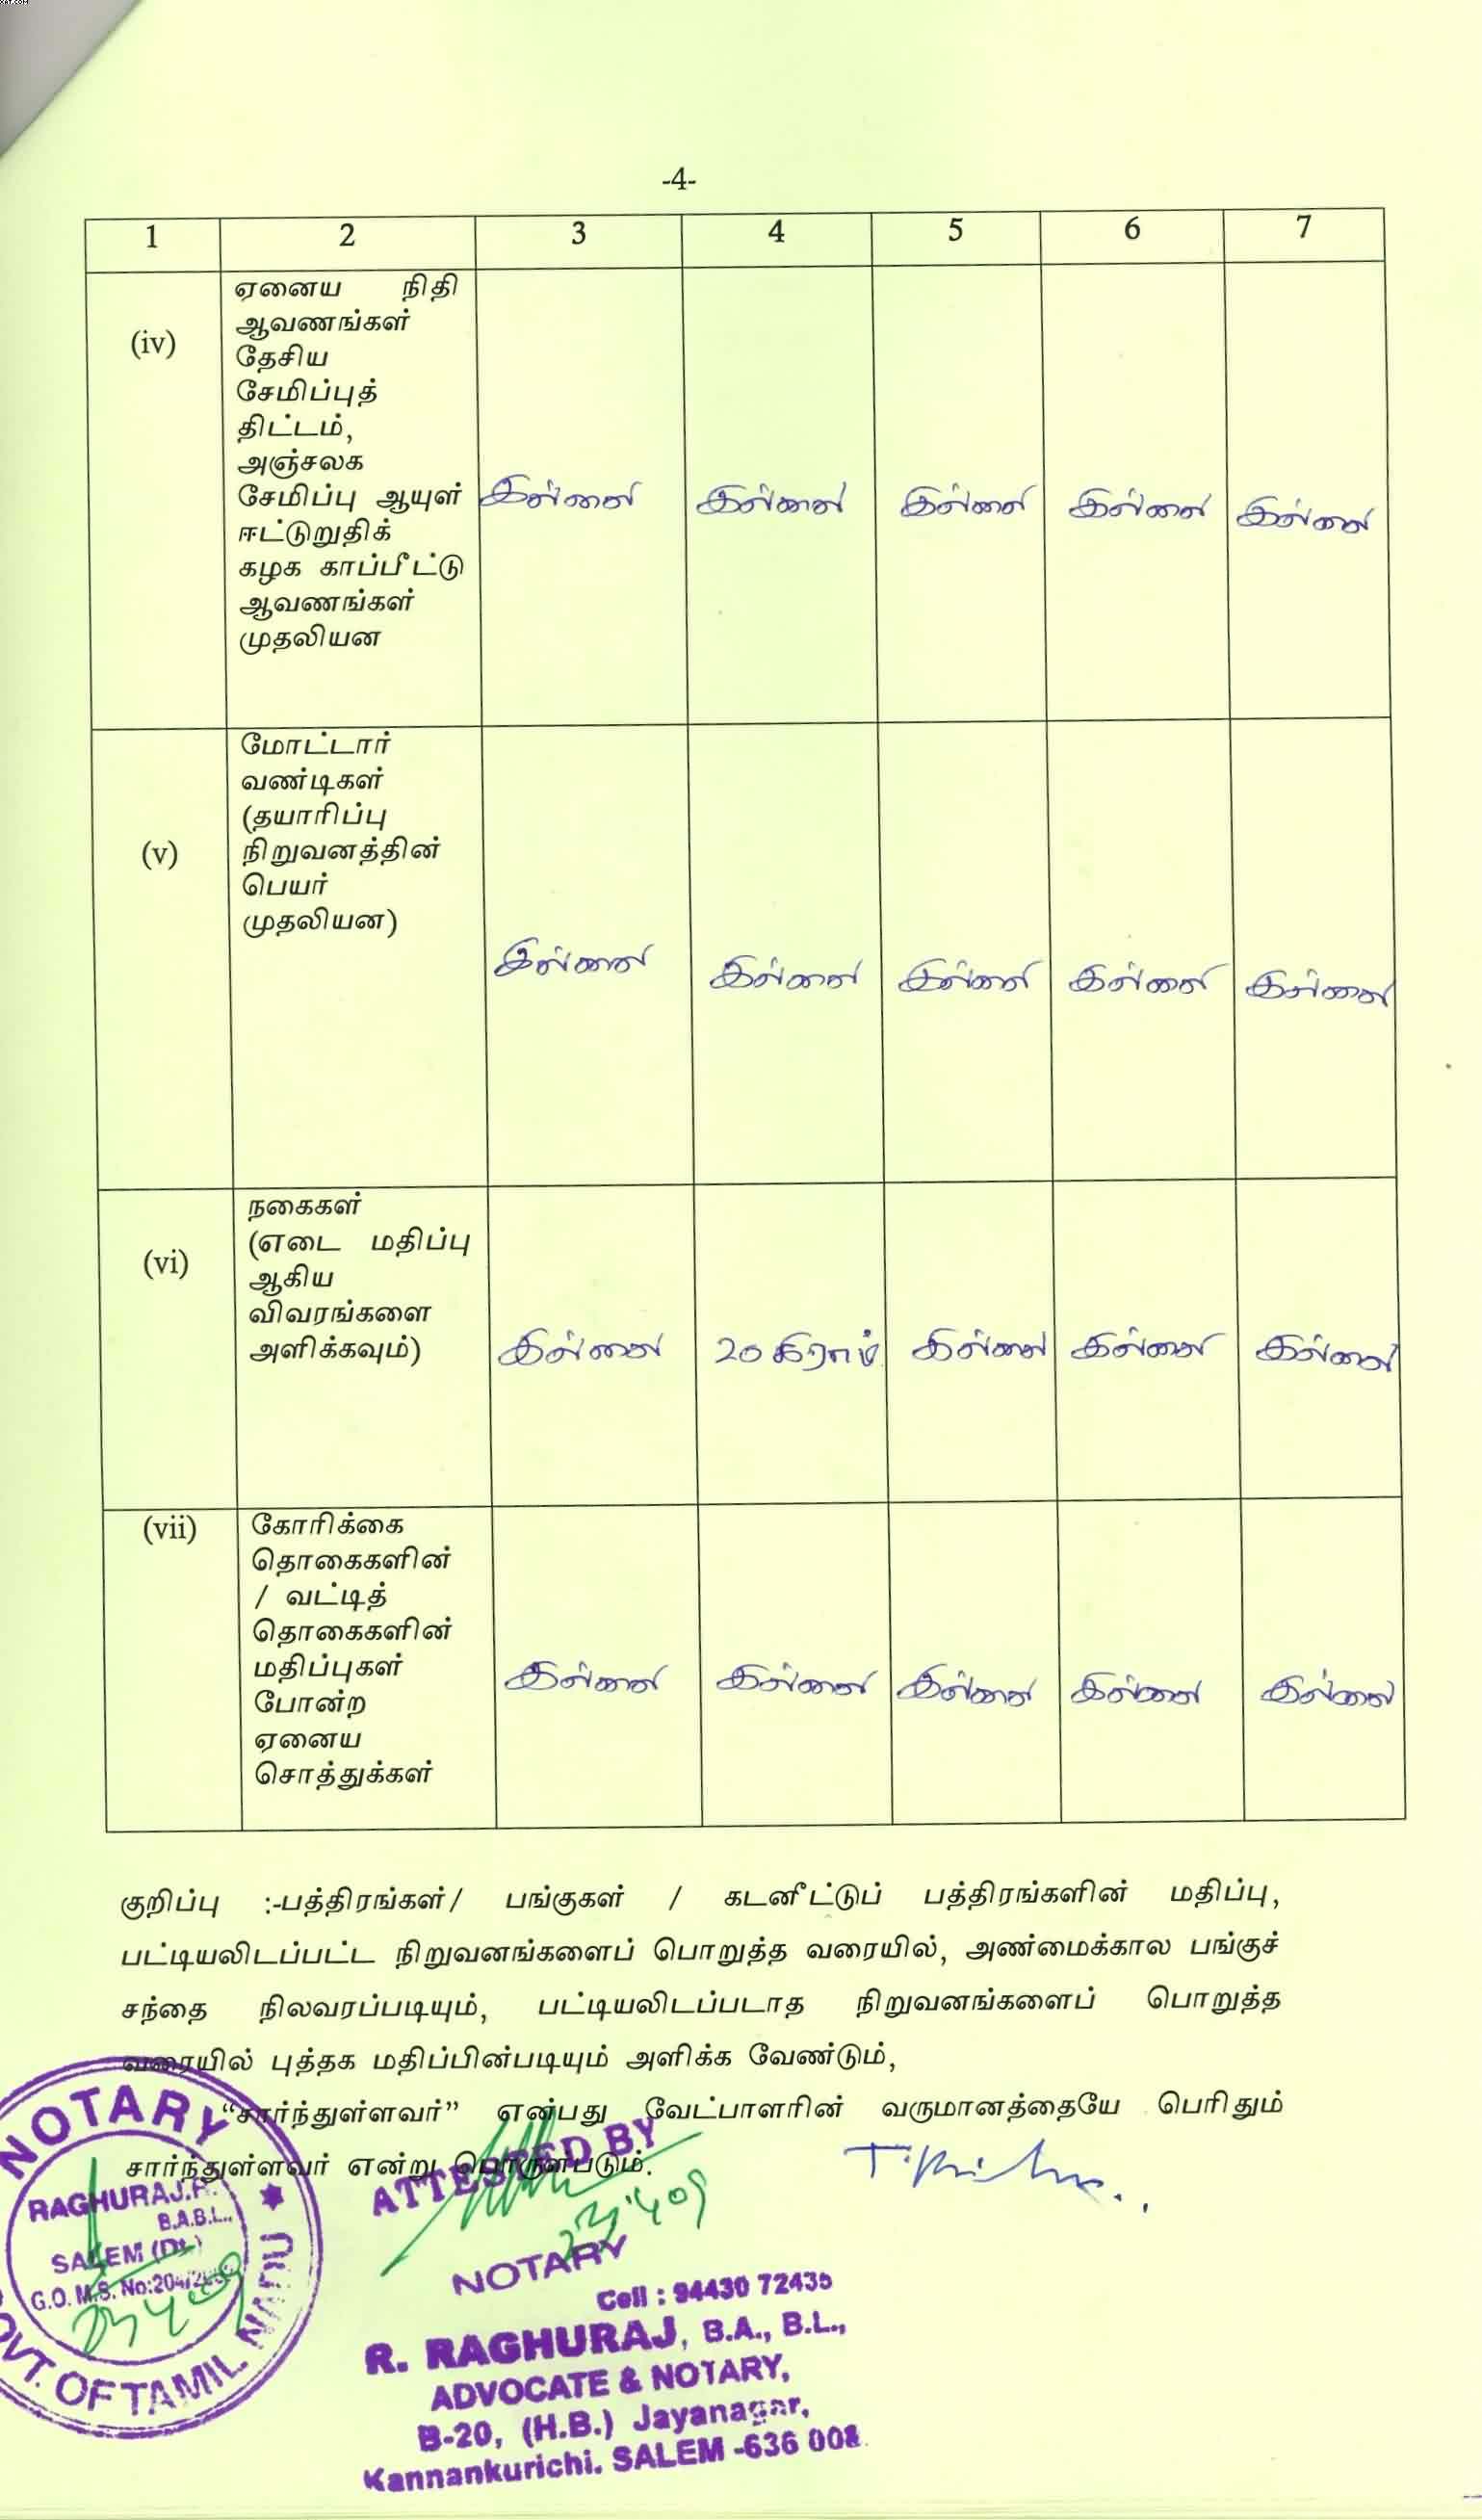 -4-
1 2 3 4 5 6 7
(iv)
ஏனைய நிதி
ஆவணங்கள்
தேசிய
சேமிப்புத்
திட்டம்,
அஞ்சலக
சேமிப்பு ஆயுள்
ஈட்டுறுதிக்
கழக காப்பீட்டு
ஆவணங்கள்
முதலியன
இல்லை இல்லை இல்லை இல்லை இல்லை
(v)
மோட்டார்
வண்டிகள்
(தயாரிப்பு
நிறுவனத்தின்
பெயர்
முதலியன)
இல்லை இல்லை இல்லை இல்லை இல்லை
(vi)
நகைகள்
(எடை மதிப்பு
ஆகிய
விவரங்களை
அளிக்கவும்)
இல்லை 20 கிராம் இல்லை இல்லை இல்லை
(vii)
கோரிக்கை
தொகைகளின்
/ வட்டித்
தொகைகளின்
மதிப்புகள்
போன்ற
ஏனைய
சொத்துக்கள்
இல்லை இல்லை இல்லை இல்லை இல்லை
குறிப்பு :-பத்திரங்கள்/ பங்குகள் / கடனீட்டுப் பத்திரங்களின் மதிப்பு,
பட்டியலிடப்பட்ட நிறுவனங்களைப் பொறுத்த வரையில், அண்மைக்கால பங்குச்
சந்தை நிலவரப்படியும், பட்டியலிடப்படாத நிறுவனங்களைப் பொறுத்த
வரையில் புத்தக மதிப்பின்படியும் அளிக்க வேண்டும்,
“சார்ந்துள்ளவர்” என்பது வேட்பாளரின் வருமானத்தையே பெரிதும்
சார்ந்துள்ளவர் என்று பொருள்படும்.
NOTARY
RAGHURAJ.R.
B.A.B.L.,
SALEM (Dt.)
G.O. M.S. No:204/
GOVT. OF TAMIL NADU
ATTESTED BY
NOTARY
Cell : 94430 72435
R. RAGHURAJ, B.A., B.L.,
ADVOCATE & NOTARY,
B-20, (H.B.) Jayanagar,
Kannankurichi. SALEM -636 008.